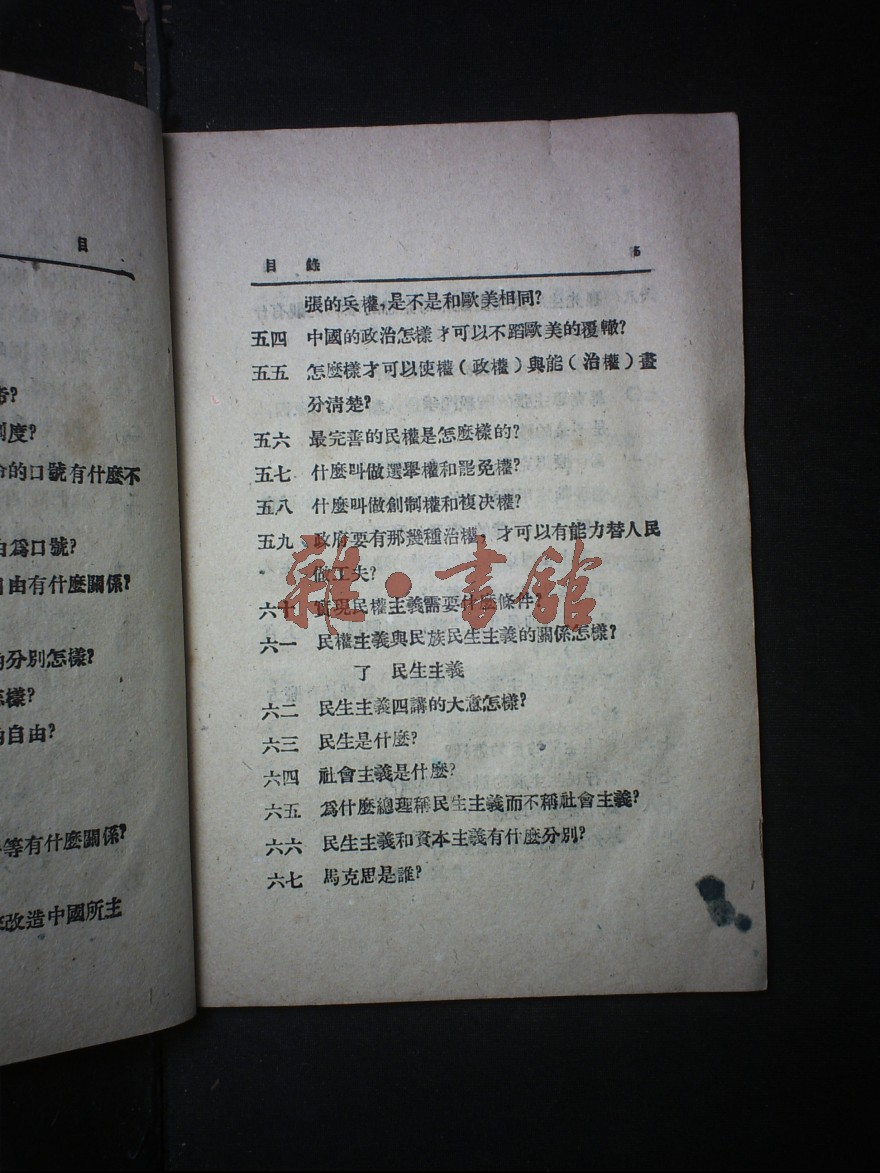 目
帝?
制度?
命的口號有什麼不
由爲口號?
自由有什麼關係?
的分別怎樣?
怎樣?
的自由?
平等有什麼關係?
來改造中國所主
目 錄 5
張的民權,是不是和歐美相同?
五四 中國的政治怎樣才可以不蹈歐美的覆轍?
五五 怎麼樣才可以使權(政權)與能(治權)畫
分清楚?
五六 最完善的民權是怎麼樣的?
五七 什麼叫做選舉權和罷免權?
五八 什麼叫做創制權和複决權?
五九 政府要有那幾種治權,才可以有能力替人民
做工夫?
六十 實現民權主義需要什麼條件?
六一 民權主義與民族民生主義的關係怎樣?
了 民生主義
六二 民生主義四講的大意怎樣?
六三 民生是什麼?
六四 社會主義是什麼?
六五 爲什麼總理稱民生主義而不稱社會主義?
六六 民生主義和資本主義有什麼分別?
六七 馬克思是誰?
雜·書館